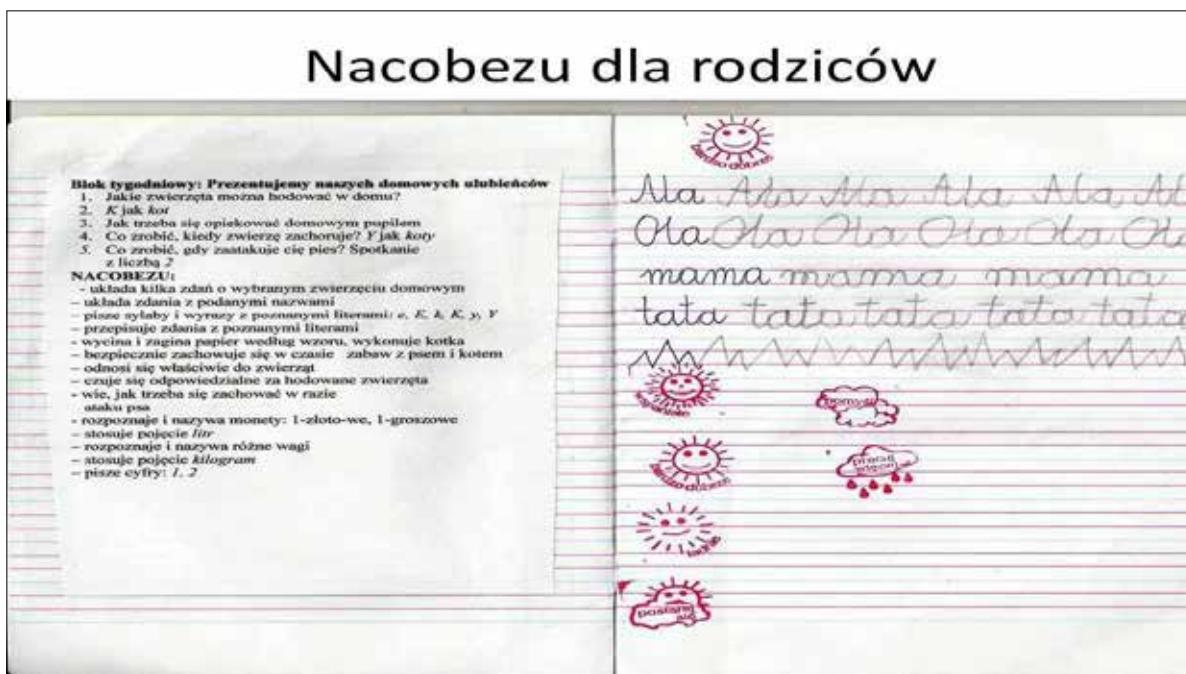 Nacobezu dla rodziców
Blok tygodniowy: Prezentujemy naszych domowych ulubieńców
1. Jakie zwierzęta można hodować w domu?
2. K jak kot
3. Jak trzeba się opiekować domowym pupilem
4. Co zrobić, kiedy zwierzę zachoruje? Y jak koty
5. Co zrobić, gdy zaatakuje cię pies? Spotkanie
z liczbą 2
NACOBEZU:
- układa kilka zdań o wybranym zwierzęciu domowym
– układa zdania z podanymi nazwami
– pisze sylaby i wyrazy z poznanymi literami: e, E, k, K, y, Y
– przepisuje zdania z poznanymi literami
- wycina i zagina papier według wzoru, wykonuje kotka
– bezpiecznie zachowuje się w czasie zabaw z psem i kotem
– odnosi się właściwie do zwierząt
– czuje się odpowiedzialne za hodowane zwierzęta
- wie, jak trzeba się zachować w razie
ataku psa
- rozpoznaje i nazywa monety: 1-złoto-we, 1-groszowe
– stosuje pojęcie litr
– rozpoznaje i nazywa różne wagi
– stosuje pojęcie kilogram
– pisze cyfry: 1, 2
bardzo dobrze
Ala Ala Ala Ala Ala Al
Ola Ola Ola Ola Ola Ola
mama mama mama
tata tata tata tata tata
wspaniale
pomyśl
bardzo dobrze
pracuj więcej
ładnie
postaraj się